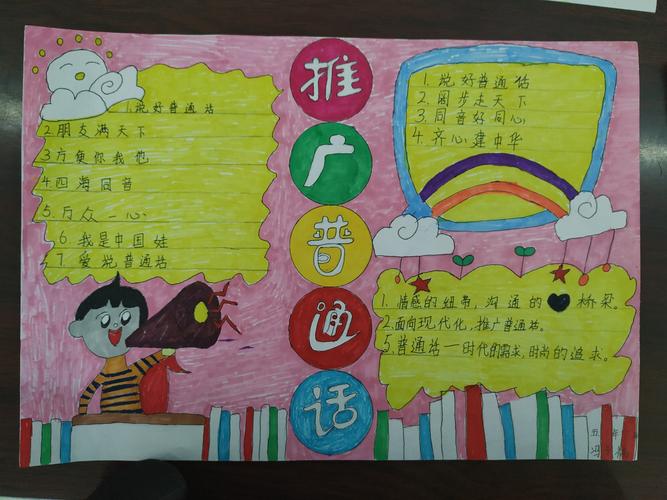 推
广
普
通
话
1.说好普通话
2.朋友满天下
3方便你我他
4.四海同音
5.万众一心
6.我是中国娃
7.爱说普通话
1.说好普通话
2.阔步走天下
3.同音好同心
4.齐心建中华
1.情感的纽带，沟通的 桥梁。
2.面向现代化，推广普通话。
5.普通话一时代的需求，时尚的追求。
五